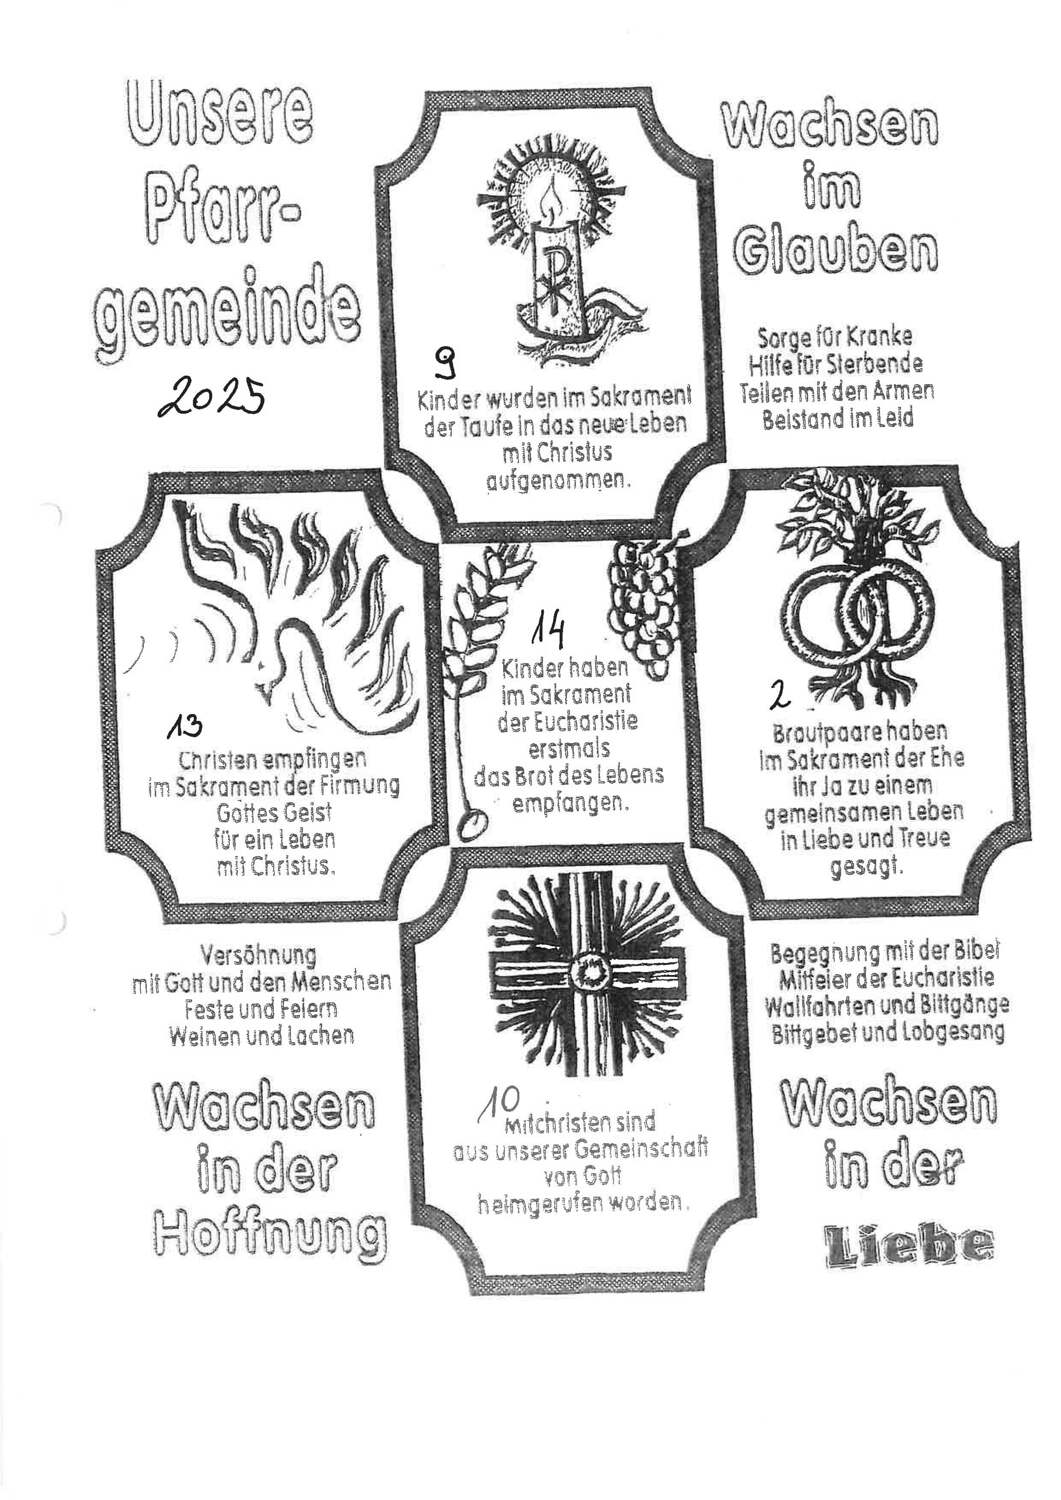 Unsere
Pfarr-
gemeinde
2025
Wachsen
im
Glauben
Sorge für Kranke
Hilfe für Sterbende
Teilen mit den Armen
Beistand im Leid
9
Kinder wurden im Sakrament
der Taufe in das neue Leben
mit Christus
aufgenommen.
13
Christen empfingen
im Sakrament der Firmung
Gottes Geist
für ein Leben
mit Christus.
14
Kinder haben
im Sakrament
der Eucharistie
erstmals
das Brot des Lebens
empfangen.
2
Brautpaare haben
im Sakrament der Ehe
ihr Ja zu einem
gemeinsamen Leben
in Liebe und Treue
gesagt.
Versöhnung
mit Gott und den Menschen
Feste und Feiern
Weinen und Lachen
Wachsen
in der
Hoffnung
10
Mitchristen sind
aus unserer Gemeinschaft
von Gott
heimgerufen worden.
Begegnung mit der Bibel
Mitfeier der Eucharistie
Wallfahrten und Bittgänge
Bittgebet und Lobgesang
Wachsen
in der
Liebe